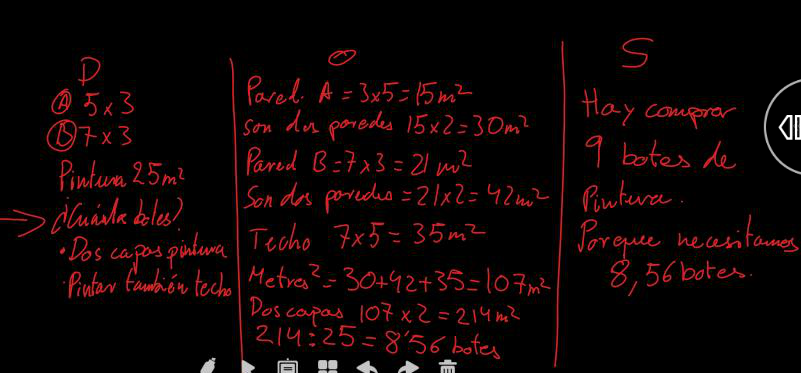 D
Ⓐ 5 x 3
Ⓑ 7 x 3
Pintura 25m²
¿Cuánta botes?
• Dos capas pintura
• Pintar también techo
O
Pared. A = 3x5 = 15m²
son dos paredes 15x2 = 30m²
Pared B = 7 x 3 = 21 m²
Son dos paredes = 21x2 = 42m²
Techo 7x5 = 35m²
Metros² = 30+42+35 = 107m²
Dos capas 107 x 2 = 214m²
214:25 = 8'56 botes
S
Hay comprar
9 botes de
Pintura.
Porque necesitamos
8,56 botes.